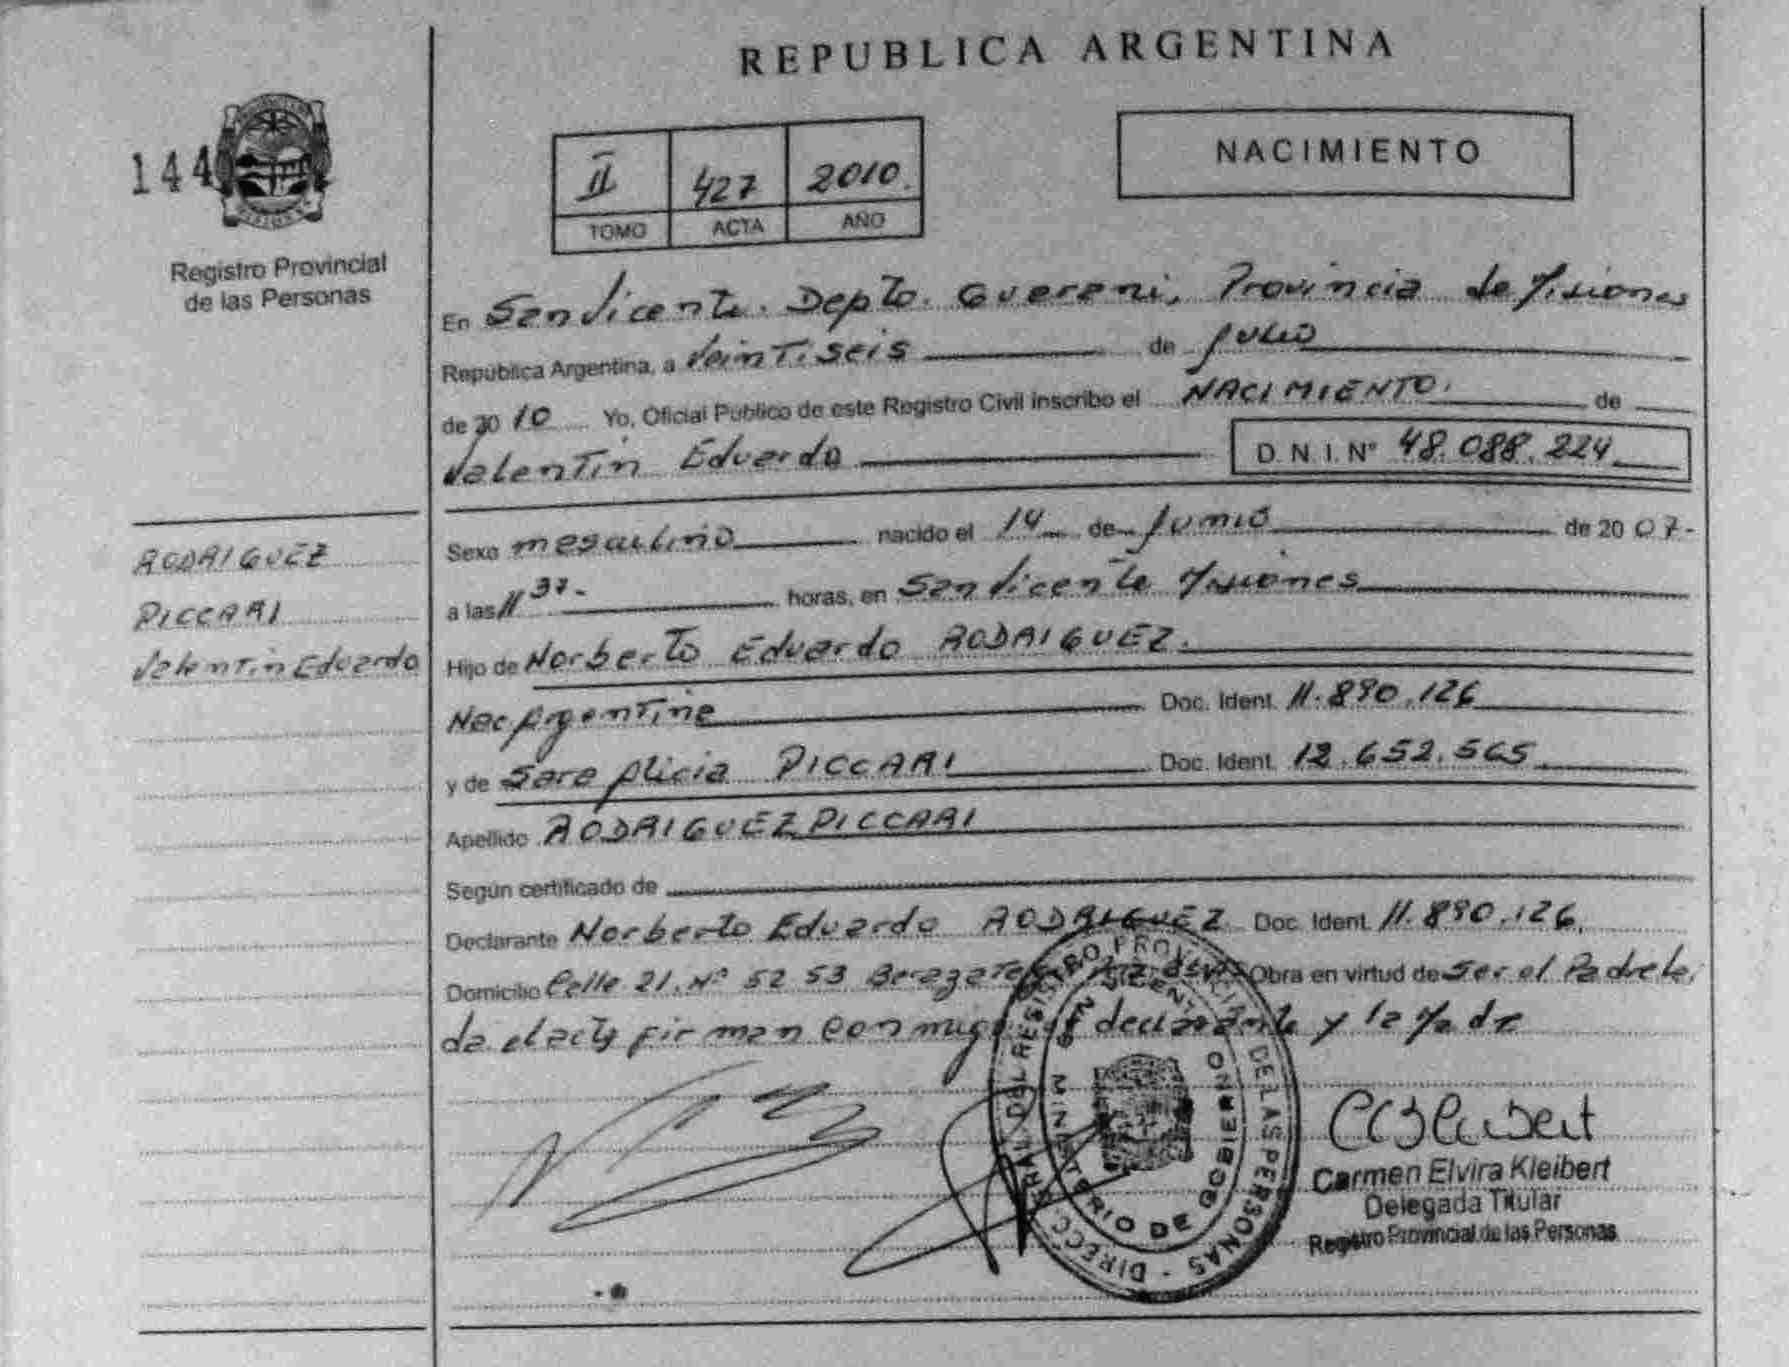 REPUBLICA ARGENTINA
144
NACIMIENTO
II 427 2010.
TOMO ACTA AÑO
Registro Provincial
de las Personas
En San Vicente. Depto. Guarani, Provincia de Misiones
República Argentina, a Veintiseis de Julio
de 2010 Yo, Oficial Público de este Registro Civil inscribo el NACIMIENTO. de
Valentín Eduardo D. N. I. Nº 48.088.224
RODRIGUEZ
PICCARI
Valentín Eduardo
Sexo masculino nacido el 14 de Junio de 2007-
a las 11 37- horas, en San Vicente Misiones
Hijo de Norberto Eduardo RODRIGUEZ.
Nac. Argentina Doc. Ident. 11.890.126
y de Sara Alicia PICCARI Doc. Ident. 12.652.565
Apellido RODRIGUEZ PICCARI
Según certificado de
Declarante Norberto Eduardo RODRIGUEZ Doc. Ident. 11.890.126.
Domicilio Calle 21. Nº 52 53 Obra en virtud de Ser el Padre Lei
da el acta firman conmigo el declarante y la Madre
DIRECC. GRAL. DEL REGISTRO PROVINCIAL DE LAS PERSONAS
SAN VICENTE
MINISTERIO DE GOBIERNO
Carmen Elvira Kleibert
Delegada Titular
Registro Provincial de las Personas